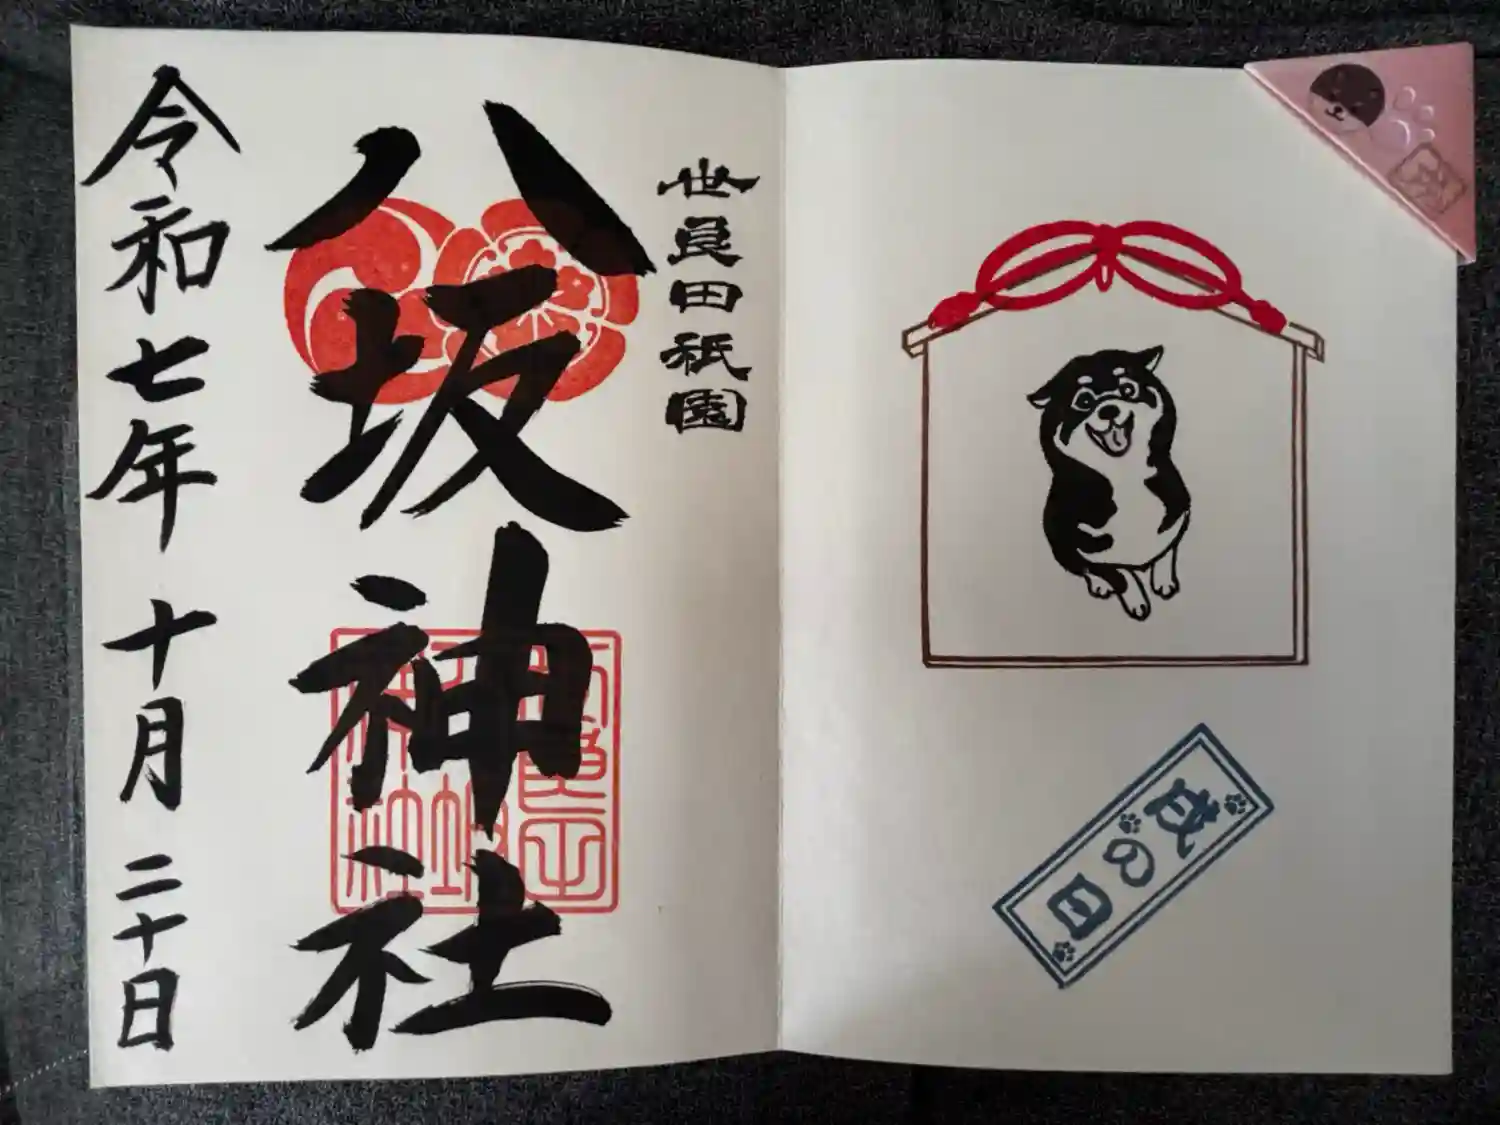 世良田祇園
八坂神社
令和七年十月二十日
戌の日